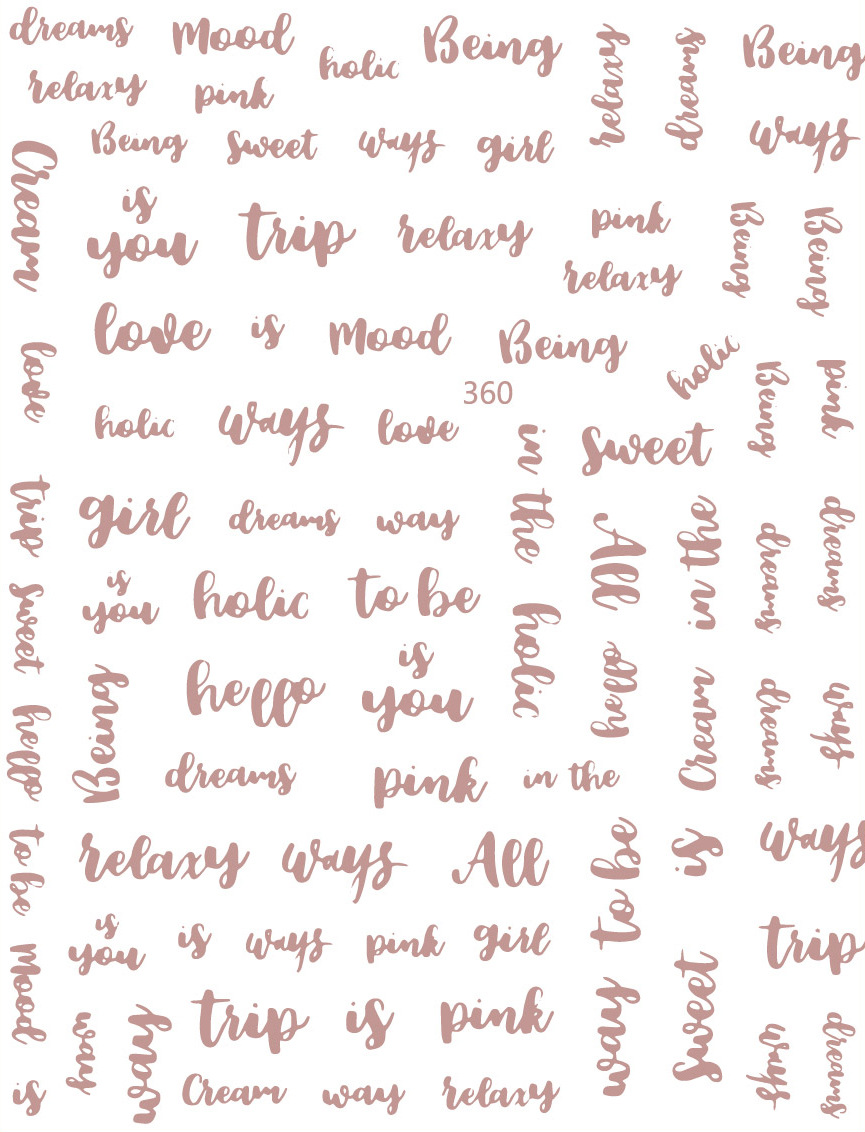 dreams Mood holic Being relaxy dreams Being
relaxy pink ways
Being Sweet ways girl
Cream is you trip relaxy pink Being Being
relaxy
love is Mood Being holic
love 360 Being pink
holic ways love in the Sweet
trip girl dreams way All in the dreams dreams
Sweet is you holic to be holic
hello Being hello is you hello Cream dreams ways
dreams pink in the
to be relaxy ways All way to be is ways
is you is ways pink girl trip
Mood way way trip is pink Sweet ways dreams
is Cream way relaxy